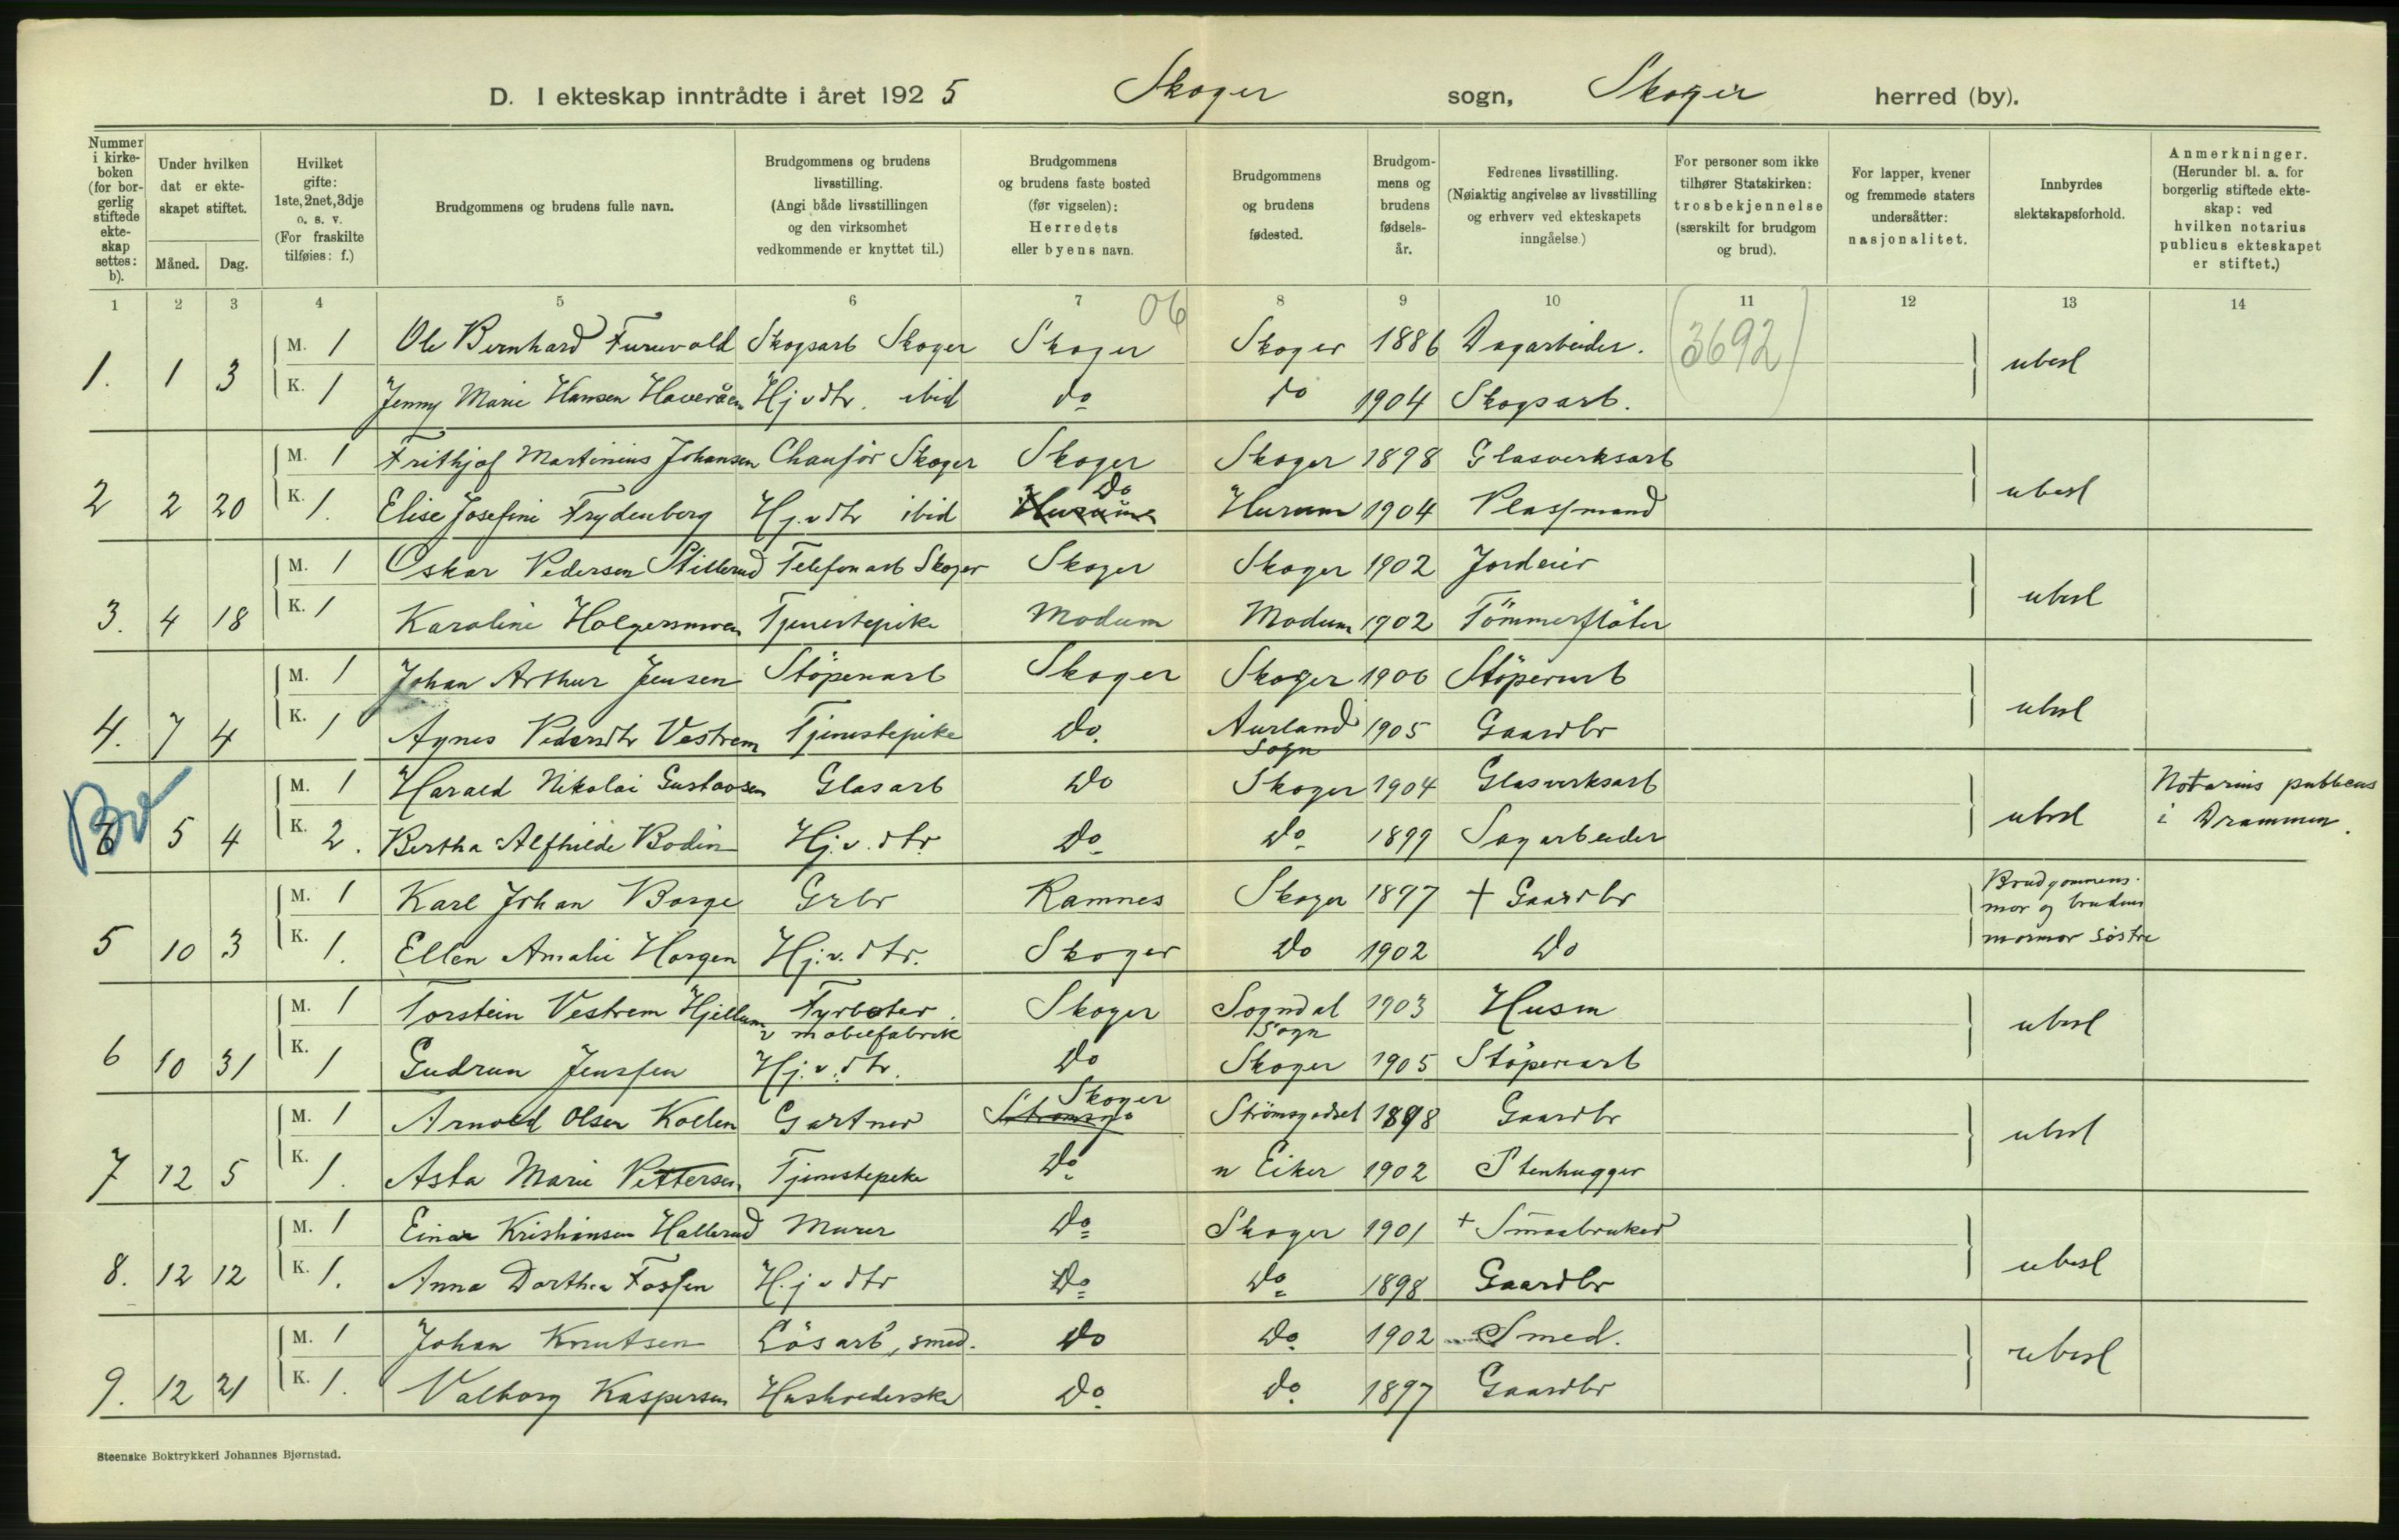 D. I ekteskap inntrådte i året 1925 Skoger sogn, Skoger herred (by).
Nummer i kirke-boken (for bor-gerlig stiftede ekte-skap settes: b).
Under hvilken dat er ekte-skapet stiftet.
Måned. Dag.
Hvilket gifte: 1ste, 2net, 3dje o. s. v. (For fraskilte tilføies: f.)
Brudgommens og brudens fulle navn.
Brudgommens og brudens livsstilling. (Angi både livsstillingen og den virksomhet vedkommende er knyttet til.)
Brudgommens og brudens faste bosted (før vigselen): Herredets eller byens navn.
Brudgommens og brudens fødested.
Brudgom-mens og brudens fødsels-år.
Fedrenes livsstilling. (Nøiaktig angivelse av livsstilling og erhverv ved ekteskapets inngåelse.)
For personer som ikke tilhører Statskirken: trosbekjennelse (særskilt for brudgom og brud).
For lapper, kvener og fremmede staters undersåtter: nasjonalitet.
Innbyrdes slektskapsforhold.
Anmerkninger. (Herunder bl. a. for borgerlig stiftede ekte-skap: ved hvilken notarius publicus ekteskapet er stiftet.)
1 2 3 4 5 6 7 8 9 10 11 12 13 14
06
(3692)
M. 1 Ole Bernhard Furuvold Skogsarb Skoger Skoger Skoger 1886 Dagarbeider.
1. 1 3 ubesl
K. 1 Jenny Marie Hansen Haveråen Hj v dtr. ibid do do 1904 Skogsarb.
M. 1 Frithjof Martinius Johansen Chaufør Skoger Skoger Skoger 1898 Glasverksarb
2 2 20 ubesl
K. 1. Elise Josefine Frydenberg Hj. v dtr ibid Do Hurum 1904 Plassmand
M. 1 Oskar Pedersen Stillerud Telefonarb Skoger Skoger Skoger 1902 Jordeier
3. 4 18 ubesl
K. 1 Karoline Holgersmoen Tjenestepike Modum Modum 1902 Tömmerflöter
M. 1 Johan Arthur Jensen Stöperiarb Skoger Skoger 1906 Stöperiarb
4. 7 4 ubesl
K. 1 Agnes Pedersdtr Vestrem Tjenestepike Do. Aurland Sogn 1905 Gaardbr
Bv
M. 1 Harald Nikolai Gustavsen Glasarb Do Skoger 1904 Glasverksarb
5 4 ubesl Notarius publicus i Drammen.
K. 2. Bertha Alfhilde Bodin Hj. v. dtr. Do Do 1899 Sagarbeider
M. 1 Karl Johan Borge Grbr Ramnes Skoger 1897 + Gaardbr
5 10 3 Brudgommens mor og brudens mormor söstre
K. 1. Ellen Amalie Horgen Hj. v. dtr. Skoger Do 1902 Do
M. 1 Torstein Vestrem Hjellum Fyrböter v möbelfabrik Skoger Sogndal Sogn 1903 Husm
6 10 31 ubesl
K. 1 Gudrun Jenssen Hj. v. dtr. Do Skoger 1905 Stöperiarb
M. 1 Arnold Olsen Kollen Gartner Skoger Strömsgodset 1898 Gaardbr
7 12 5 ubesl
K. 1. Asta Marie Pettersen Tjenestepike Do n Eiker 1902 Stenhugger
M. 1 Einar Kristiansen Hallerud Murer Do Skoger 1901 + Smaabruker
8. 12 12 ubesl
K. 1. Anna Dorthea Fossen H. j v dtr Do Do 1898 Gaardbr
M. 1 Johan Knutsen Lösarb, smed. Do Do 1902 Smed.
9. 12 21 ubesl
K. 1. Valborg Kaspersen Husholderske Do Do 1897 Gaardbr
Steenske Boktrykkeri Johannes Bjørnstad.